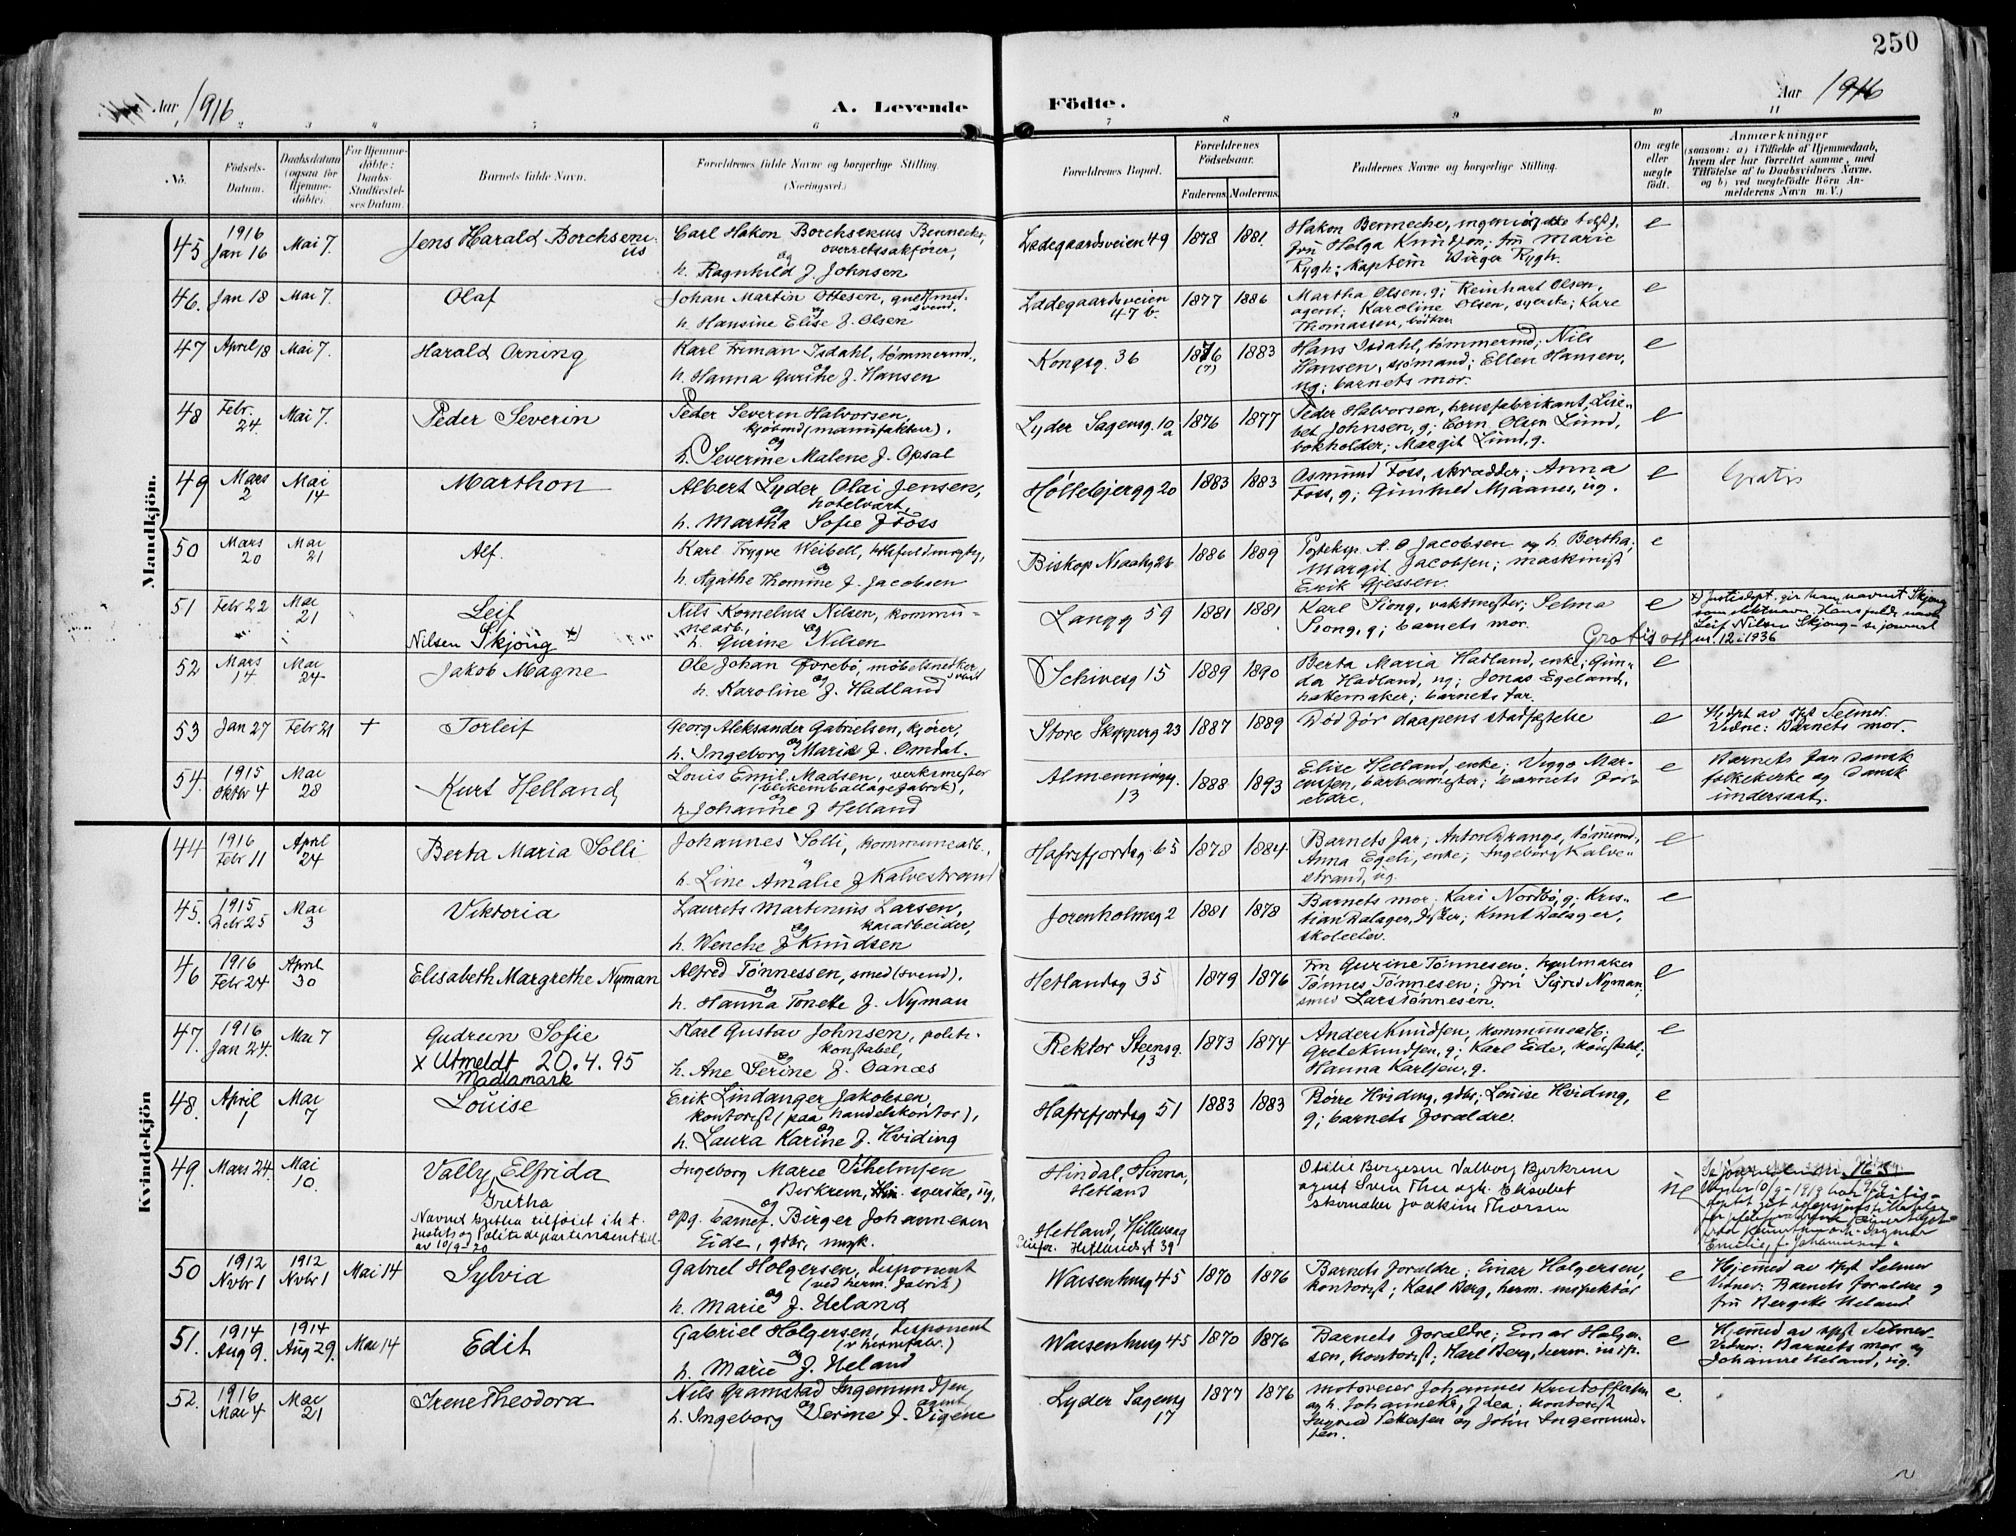 250
Aar 1916
A. Levende
Födte.
Aar 1916
2 3 4 5 6 7 8 9 10 11
No.
Födsels-
Datum.
Daabsdatum
(ogsaa for
Hjemme-
döbte).
For Hjemme-
döbte:
Daabs-
Stadfæstel-
ses Datum.
Barnets fulde Navn.
Forældrenes fulde Navne og borgerlige Stilling.
(Næringsvei.)
Forældrenes Bopæl.
Forældrenes
Födselsaar.
Faderens. Moderens.
Faddernes Navne og borgerlige Stilling.
Om ægte
eller
uægte
födt.
Anmærkninger
(saasom: a) i Tilfælde af Hjemmedaab,
hvem der har forrettet samme, med
Tilföielse af to Daabsvidners Navne,
og b) ved uægtefödte Börn An-
melderens Navn m. V.)
Mandkjön.
45 1916
Jan 16 Mai 7.
Jens Harald Borchseni-
us
Carl Hakon Borchsenius Bennecke,
overretssakfører,
og
h. Ragnhild f. Johnsen
Ladegaardsveien 49 1878 1881.
Hakon Bennecke, ingeniør
Frü Helga Knudsen; frü Marie
Rygh; kaptein Birger Rygh.
e
46. Jan 18 Mai 7.
Olaf
Johan Martin Ottesen, guldsmed-
svend,
og
h. Hansine Elise f. Olsen
Ladegaardsveien
47 b. 1877 1886
Martha Olsen, g; Reinhart Olsen,
agent; Karoline Olsen, syerske; Kare
Thomassen, bødker
e
47 April 18 Mai 7.
Harald Orning
Karl Firman Isdahl, tømmermd.,
og
h. Hanna Gurine f. Hansen
Kongsg. 36 1876
(?) 1883
Hans Isdahl, tømmermd; Nils
Hansen, sjømand; Ellen Hansen,
ug; barnets mor.
e
48 Febr.
24. Mai 7.
Peder Severin
Peder Severin Halvorsen,
kjøbmd (manufaktur),
og
h. Severine Malene f. Opsal
Lyder Sagensg. 10
a 1876 1877
Peder Halvorsen, brusfabrikant, Lise-
bet Johnsen, g; Olsen Lund,
bokholder; Margit Lund, g.
e
49 Mars
2 Mai
14
Marthon
Albert Lyder Olai Jensen,
hotelvært,
og
h. Martha Sofie f Foss
Hollebjergg 20 1883 1883
Asmund Foss, skrædder; Anna
Foss, g; Gunhild Mjaanes, ug.
e
Gratis
50 Mars
20 Mai
21
Alf.
Karl Trygve Weibell,
og
h. Agathe Thomine f. Jacobsen
Biskop Njaalsg 26 1886 1889
Posteksp. A. O Jacobsen og h. Bertha;
Margit Jacobsen; maskinist
Erik Gjessen.
e
51 Febr 22 Mai
21
Leif
Nilsen Skjong x)
Nils Kornelius Nilsen, kommu-
nearb.,
og
h. Gurine Nilsen
Langg 59 1881 1881
Karl Siong, vaktmester; Selma
Siong, g; barnets mor.
e
x) Justisdept. gir ham navnet Skjong
som slektsnavn. Hans fulde navn
Leif Nilsen Skjong - se journal
nr. 12 i 1936
Gratis att
52 Mars
14 Mai
24
Jakob Magne
Ole Johan Øvrebø, møbelsnedker
svend
og
h. Karoline f. Hadland
Schivesg 15 1889 1890
Berta Maria Hadland, enke; Gun-
da Hadland, ug; Jonas Egeland,
hattemaker; barnets far.
e
53 Jan 27 Febr 21 +
Torleif
Georg Aleksander Gabrielsen, kjører,
og
h. Ingeborg Marie f. Omdal.
Store Skipperg 23 1887 1889
Død før daapens stadfæstelse
e
Hjdpt av spt Selmer.
Vidne: Barnets mor.
54. 1915
Oktbr 4 Mai
28
Kurt Helland
Louis Emil Madsen, verksmester
(blikemballagefabrik),
og
h. Johanne f Helland
Almenningg.
13 1888 1893
Elise Helland, enke; Viggo Mar-
cussen, barbermester; barnets for-
ældre.
e
Barnets far Dansk
folkekirke og Dansk
undersaat.
Kvindekjön
44 1916
Febr 11 April
24
Berta Maria Solli
Johannes Solli, kommunearb.,
h. Line Amalie f Kalvestrand
Hafrsfjordsg 65 1878 1884
Barnets far; Anton Drange, tømmermd,
Anna Egeli, enke; Ingeborg Kalve-
strand, ug.
e
45. 1915
Debr 25 Mai
3
Viktoria
Laurits Martinius Larsen,
kararbeider,
og
h. Wenche f Knudsen
Jorenholmsg 2 1881 1878
Barnets mor; Kari Nordbø, g; Kris-
tian Dalager, fisker; Knut Dalager,
skoleelev.
e
46 1916
Febr 24 April
30
Elisabeth Margrethe Nyman
Alfred Tønnessen, smed (svend).
og
h. Hanna Tonette f. Nyman
Hetlandsg 35 1879 1876
Fru Gurine Tønnesen, hjulmaker
Tønnes Tønnesen; frü Sigred Nyman;
smed Lars Tønnesen.
e
47. 1916
Jan 24. Mai 7
Gudrun Sofie
x Utmeldt 20.4.95
Madlamark
Karl Gustav Johnsen, politi-
konstabel,
og
h. Ane Serine f. Sanæs
Rektor Steensg.
13 1873 1874
Anders Knudsen, kommunearb.;
Grete Knudsen, g; Karl Eide, konstabel;
Hanna Karlsen, g.
e
48. April
1 Mai
7
Louise
Erik Lindanger Jakobsen,
kontorist (paa handelskontor),
og
h. Laura Karine f. Hviding
Hafrsfjordsg 51 1883 1883
Børre Hviding, gdbr; Louise Hviding,
g; barnets forældre.
e
49. Mars 24. Mai
10.
Vally Elfrida
Gretha
Navnet Gretha tilføiet i h. t.
Justits og Politidepartementet
av 10/9-20
Ingeborg Marie Vilhelmsen
Birkrem, syerske, ug,
og
opg. barnef. Birger Johannesen
Eide, gdbr, ungk.
Hindal, Hinna,
Hetland
Hetland, Hillevaag
Hetlandsst 39
Otilie Borgesen Valborg Birkrem
agent Sven Elisabet
skomaker Joakim Thorsen
ug
50 1912
Novbr 1 1912
Novbr 1 Mai 14
Sylvia
Gabriel Holgersen, disponent
(ved herm. fabrik)
og
h. Marie f. Ueland
Waisenhusg 45 1870 1876
Barnets forældre; Einar Holgersen,
kontorist; Karl Berg, herm. inspektør
e
Hjemmed av spt Selmer
Vidner: Barnets forældre og
frü Bergitte Ueland
51. 1914
Aug 9. 1914
Aug 29. Mai 14
Edit
Gabriel Holgersen, disponent
(v hermfabr.)
og
h. Marie f. Ueland
Waisenhusg 45 1870 1876
Barnets forældre; Einar Holger-
sen, kontorist; Karl Berg, herm. insp.
e
Hjemmed av spt Selmer.
Vidner: Barnets mor og
Johanne Ueland, ug.
52. 1916
Mai 4 Mai
21
Irene Theodora
Nils Gramstad Ingemundsen,
agent
og
h. Ingeborg Serine f. Vigene
Lyder Sagensg
17 1877 1876
Motoreier Johannes Kristoffersen
og h. Johanneke, f dea; kontorist
Ingvald Pettersen og John Ingemund-
sen.
e